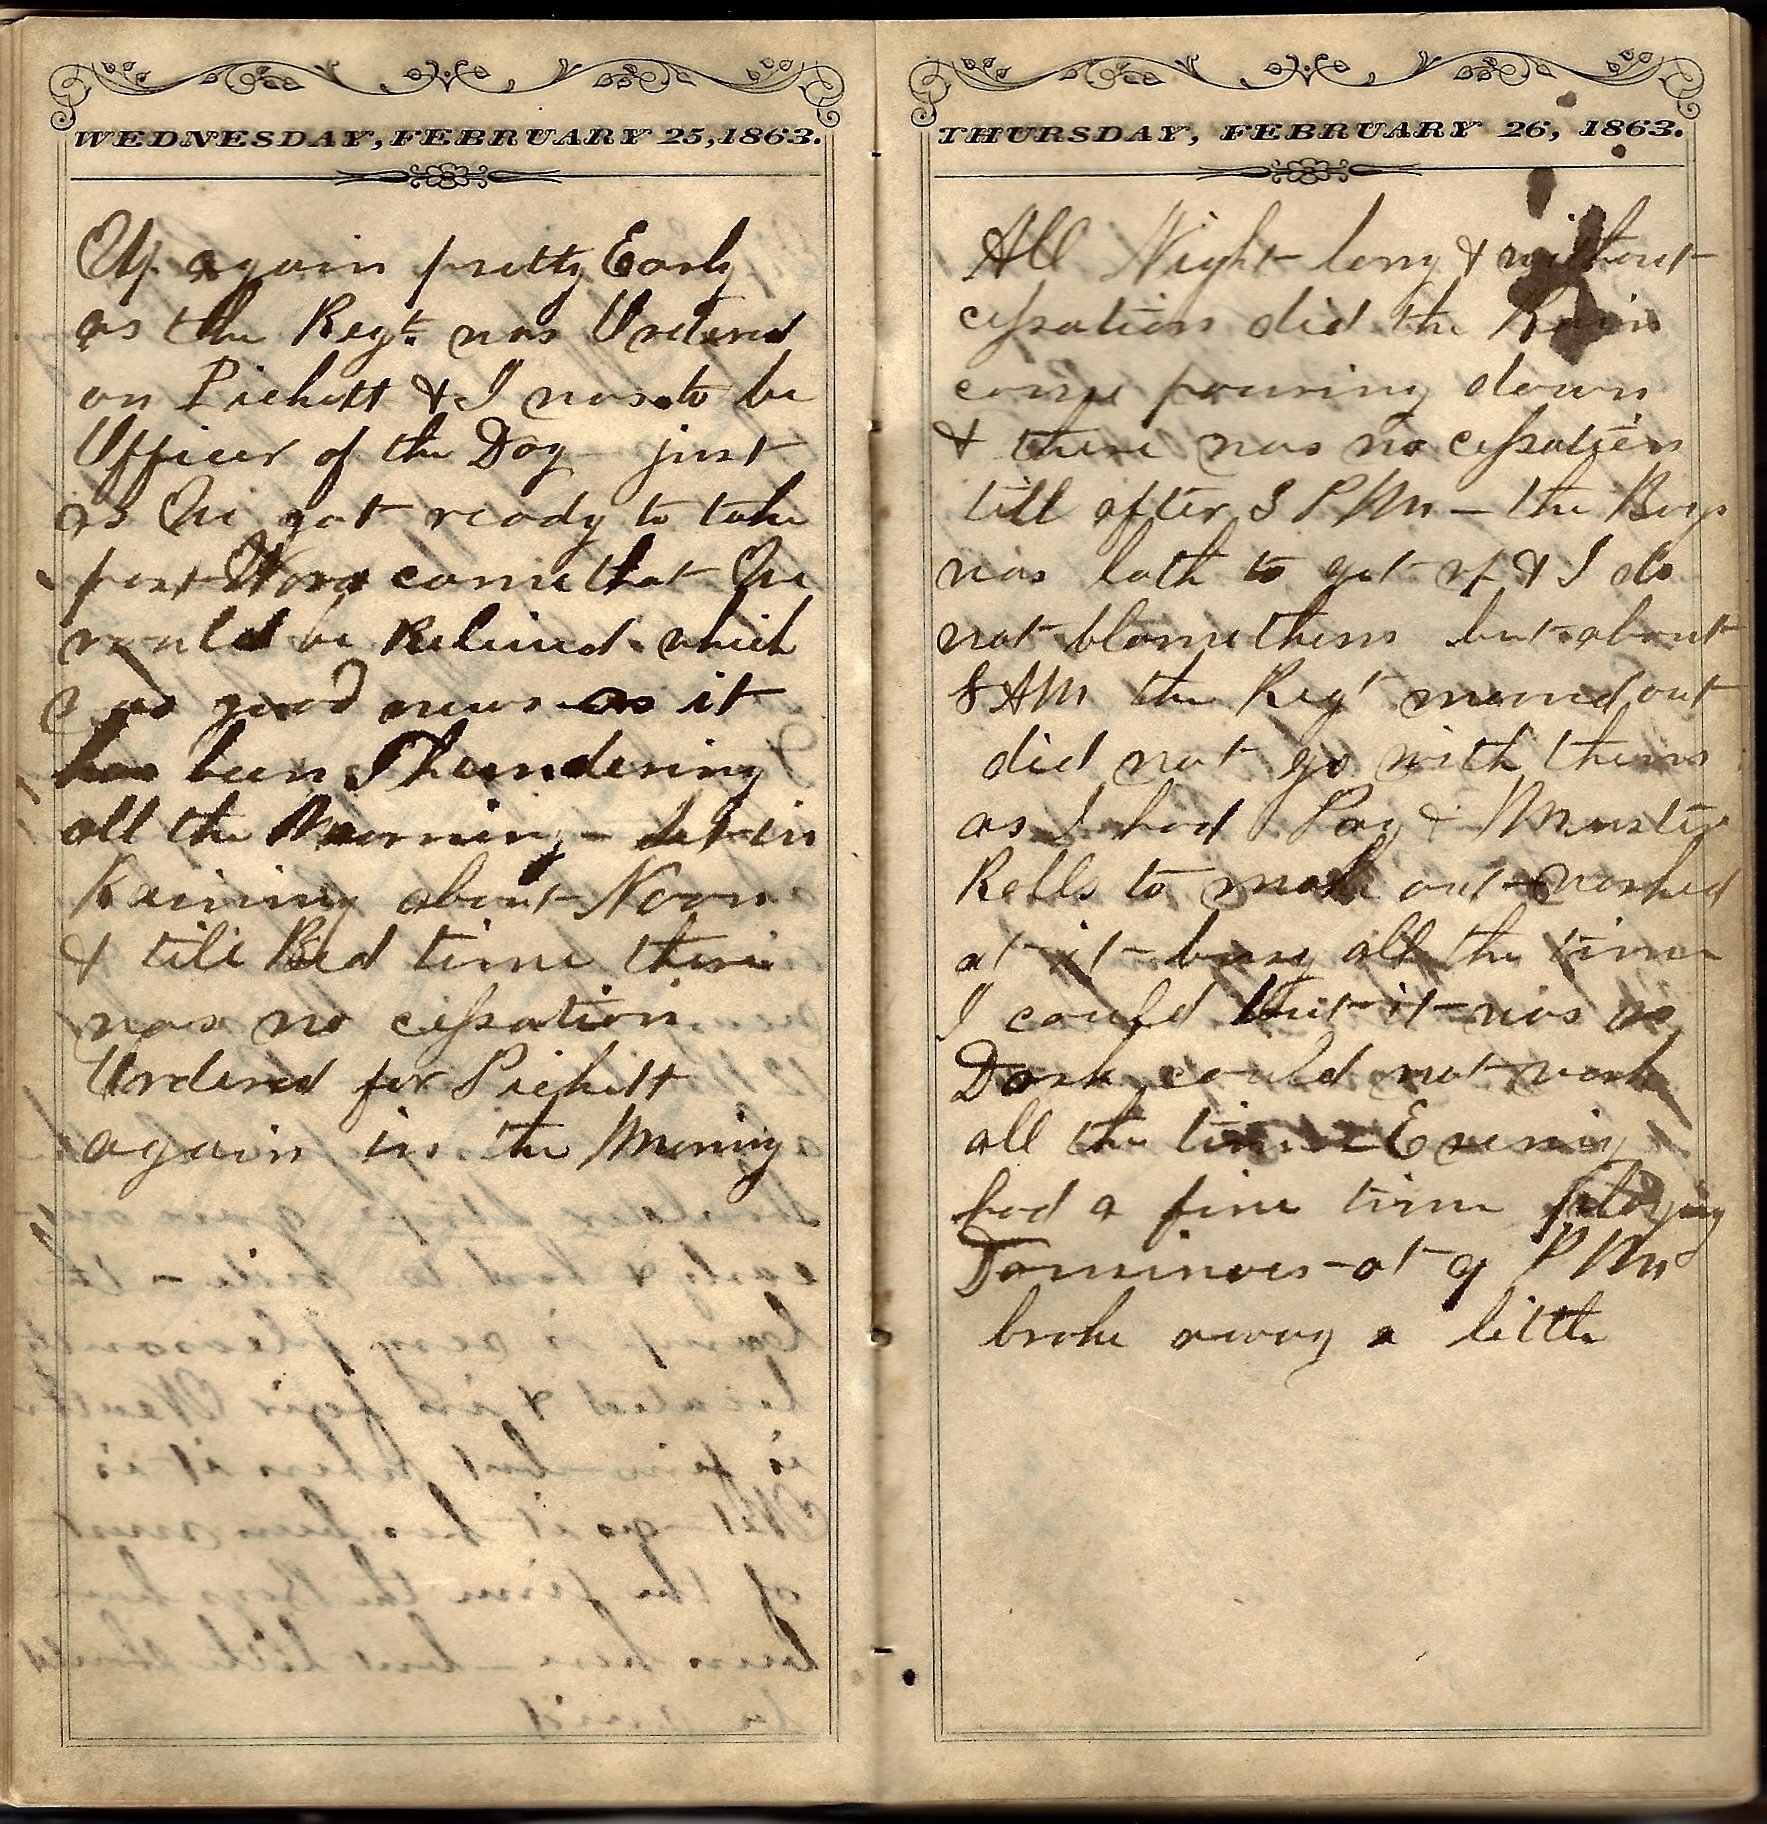 WEDNESDAY, FEBRUARY 25, 1863.
Up again pretty Early
as the Regt. was Ordered
on Pickett & I was to be
Officer of the Day just
as We got ready to take
post Word come that We
would be Relieved which
was good news as it
has been Thundering
all the Morning - Set in
Raining about Noon
& till Bed time there
was no cessation
Ordered for Pickett
again in the Morning
THURSDAY, FEBRUARY 26, 1863.
All Night long & without
cessation did the Rain
come pouring down
& there was no cessation
till after 3 PM - the Boys
was loth to get up & I do
not blame them but about
8 AM the Regt moved out
did not go with them
as I had Pay & Muster
Rolls to make out - worked
at it - busy all the time
I could but it was so
Dark could not work
all the time - Evening
had a fine time playing
Dominoes - at 9 PM
broke away a little